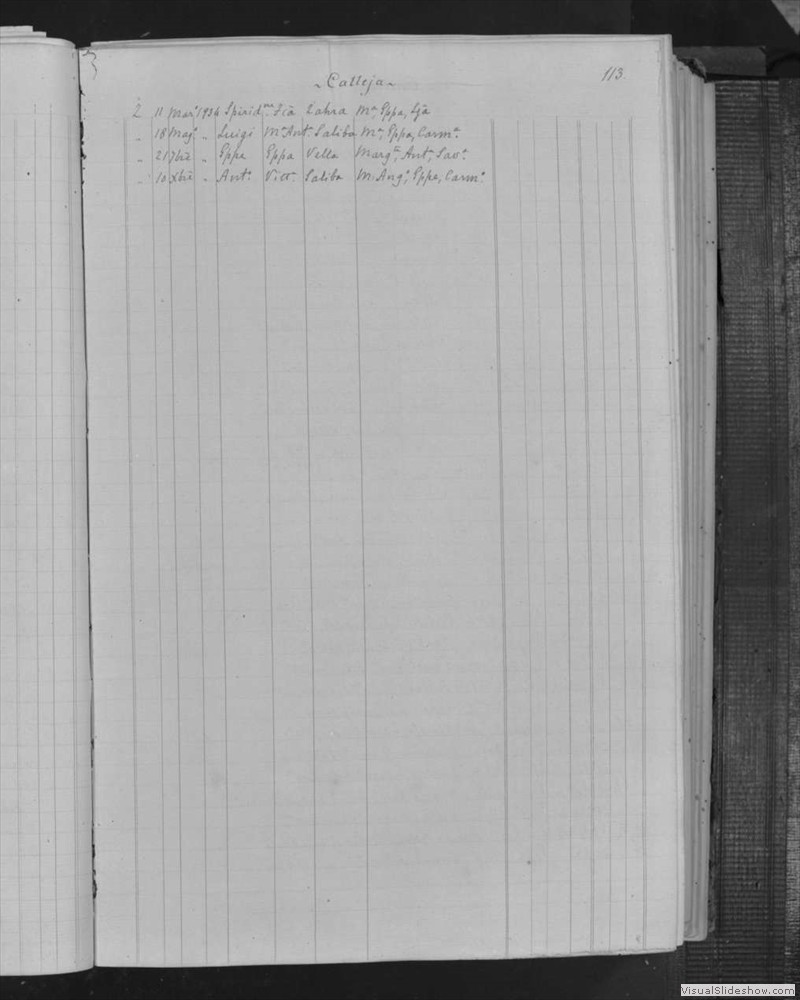 ~ Calleja ~
113.
2 11 Marº 1934 Spirid.ne Zahra Mª, Eppa,
„ 18 Magº „ Luigi Mª Antª Saliba Mª, Eppa, Carmª
„ 21 7bre „ Eppe Eppa Vella Margª, Antª, Savª
„ 10 Xbre „ Antº Victª Saliba M. Angª, Eppa, Carmª
VisualSlideshow.com